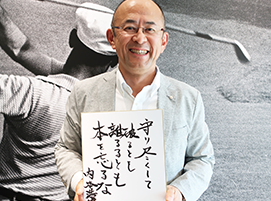 守り尽くして
破るとも
離るるとも
本を忘るな